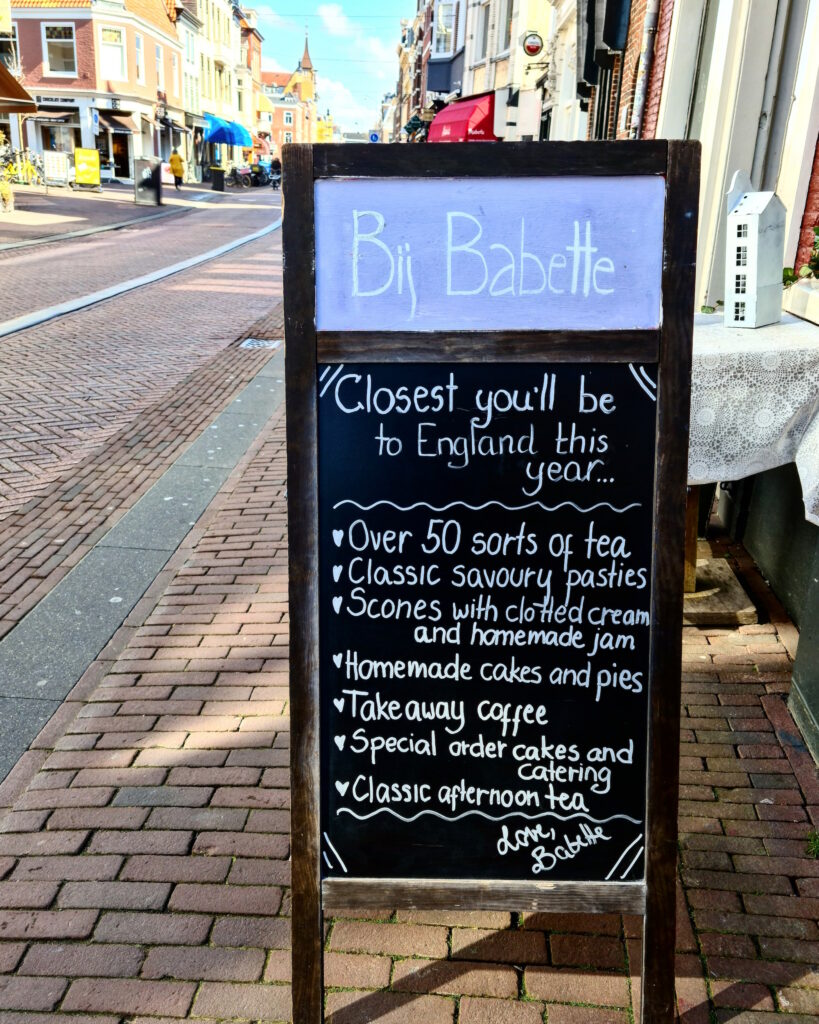 Bij Babette
Closest you'll be
to England this
year...
Over 50 sorts of tea
Classic savoury pasties
Scones with clotted cream
and homemade jam
Homemade cakes and pies
Take away coffee
Special order cakes and
catering
Classic afternoon tea
Love,
Babette